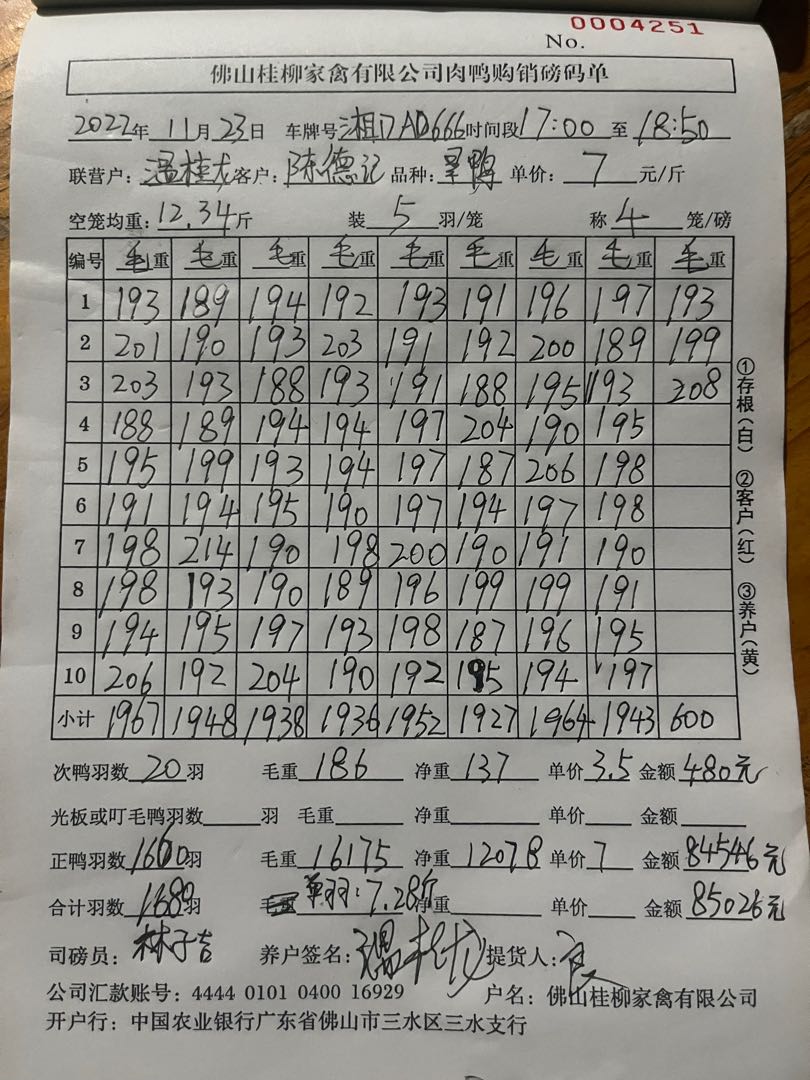 No. 0004251
佛山桂柳家禽有限公司肉鸭购销磅码单
2022年 11月 23日 车牌号 湘DAD666 时间段 17:00 至 18:50
联营户: 温桂龙 客户: 陈德记 品种: 呈鸭 单价: 7 元/斤
空笼均重: 12.34 斤 装 5 羽/笼 称 4 笼/磅
编号 毛重 毛重 毛重 毛重 毛重 毛重 毛重 毛重 毛重
1 193 189 194 192 193 191 196 197 193
2 201 190 193 203 191 192 200 189 199
3 203 193 188 193 191 188 195 193 208
4 188 189 194 194 197 204 190 195
5 195 199 193 194 197 187 206 198
6 191 194 195 190 197 194 197 198
7 198 214 190 198 200 190 191 190
8 198 193 190 189 196 199 199 191
9 194 195 197 193 198 187 196 195
10 206 192 204 190 192 195 194 197
小计 1967 1948 1938 1936 1952 1927 1964 1943 600
①存根(白) ②客户(红) ③养户(黄)
次鸭羽数 20 羽 毛重 186 净重 137 单价 3.5 金额 480元
光板或叮毛鸭羽数 羽 毛重 净重 单价 金额
正鸭羽数 羽 毛重 16175 净重 12078 单价 7 金额 84546元
合计羽数 1689 羽 单羽:7.28斤 净重 单价 金额 85026元
司磅员: 林子吉 养户签名: 温桂龙 提货人: 良
公司汇款账号: 4444 0101 0400 16929 户名: 佛山桂柳家禽有限公司
开户行: 中国农业银行广东省佛山市三水区三水支行